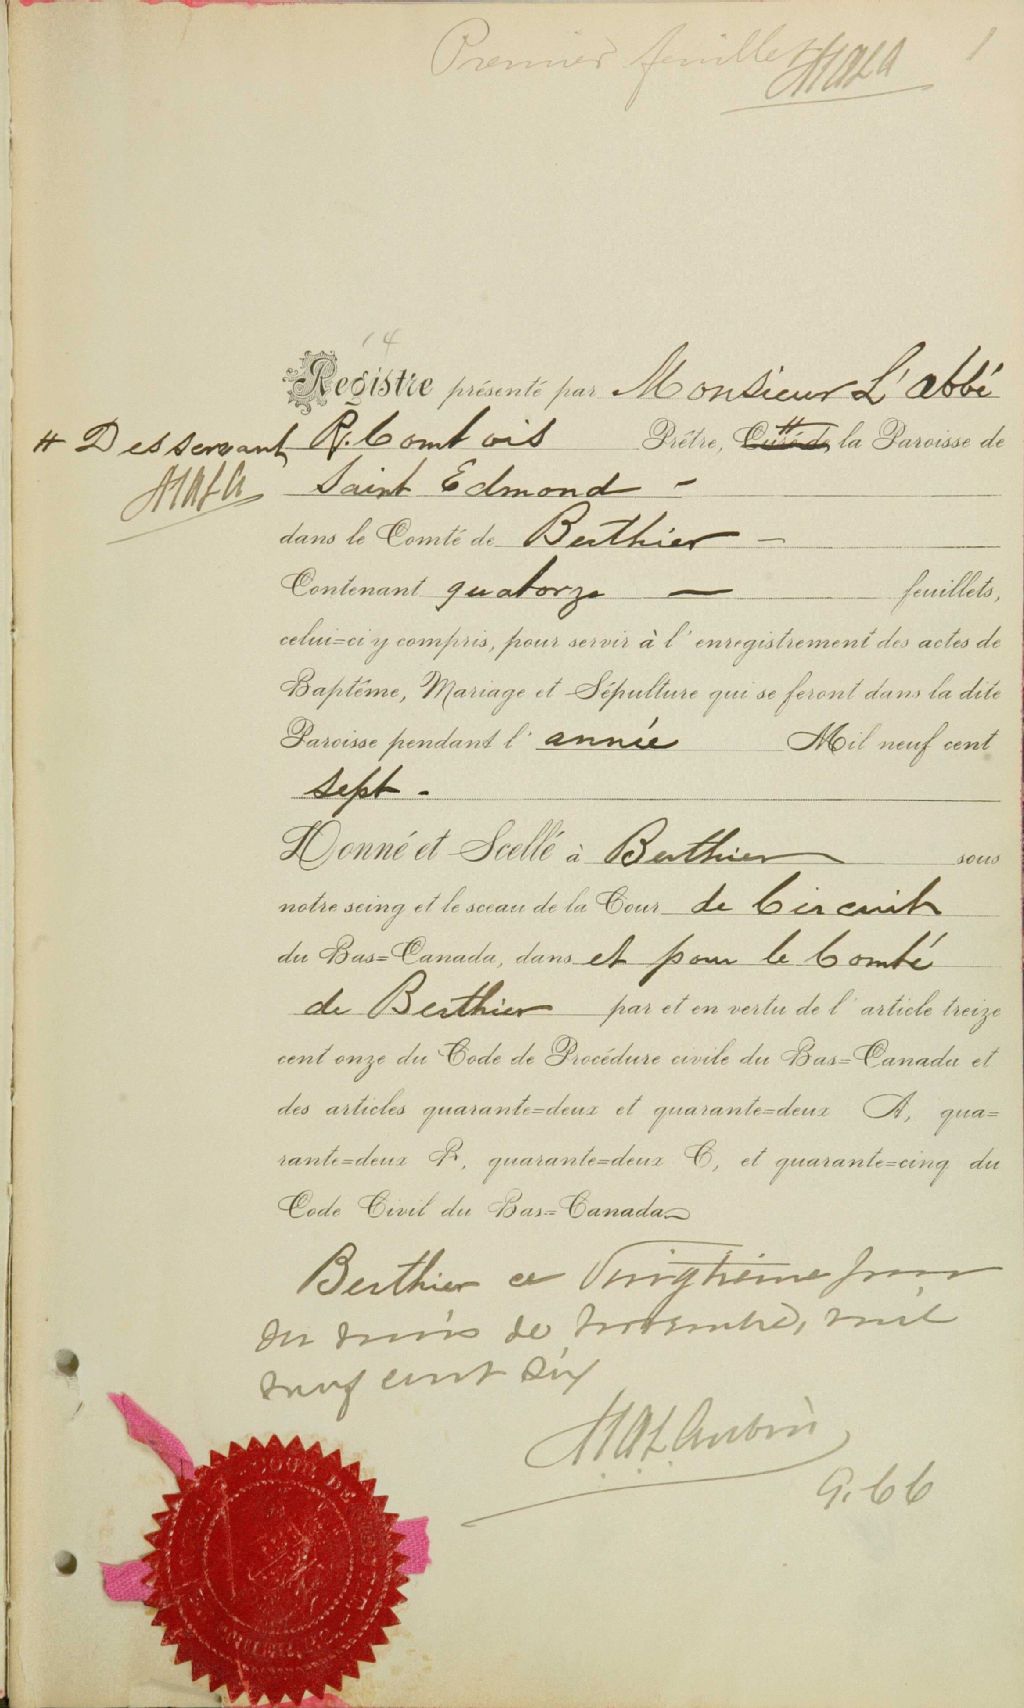 Premier feuillet HALA 1
14
Registre présenté par Monsieur L'abbé
# Desservant R. Comtois Prêtre, Curé de # la Paroisse de
HALA Saint Edmond -
dans le Comté de Berthier -
Contenant quatorze — feuillets,
celui=ci y compris, pour servir à l'enregistrement des actes de
Baptême, Mariage et Sépulture qui se feront dans la dite
Paroisse pendant l'année Mil neuf cent
sept.
Donné et Scellé à Berthier sous
notre seing et le sceau de la Cour de Circuit
du Bas=Canada, dans et pour le Comté
de Berthier par et en vertu de l'article treize
cent onze du Code de Procédure civile du Bas=Canada et
des articles quarante=deux et quarante=deux A, qua=
rante=deux B, quarante=deux C, et quarante=cinq du
Code Civil du Bas=Canada
Berthier ce Vingtième jour
du mois de novembre, mil
neuf cent six
Aubin
G. C C